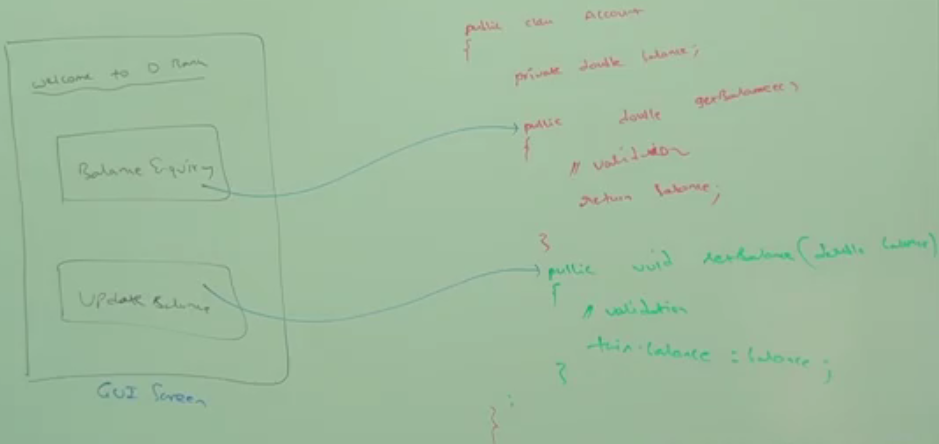 welcome to D Bank
Balance Enquiry
Update Balance
GUI Screen
public class Account
{
private double balance;
public double getBalance()
{
// validation
return balance;
}
public void setBalance(double balance)
{
// validation
this.balance = balance;
}
}